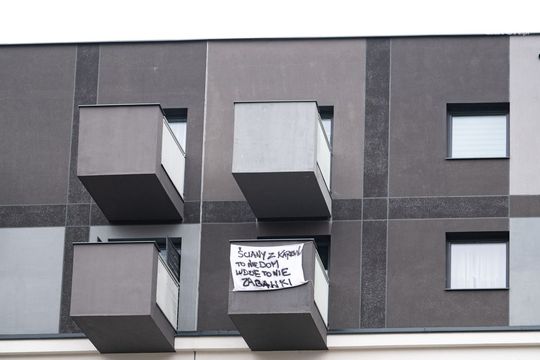 ŚCIANY Z KARTONU
TO NIE DOM
LUDZIE TO NIE
ZABAWKI